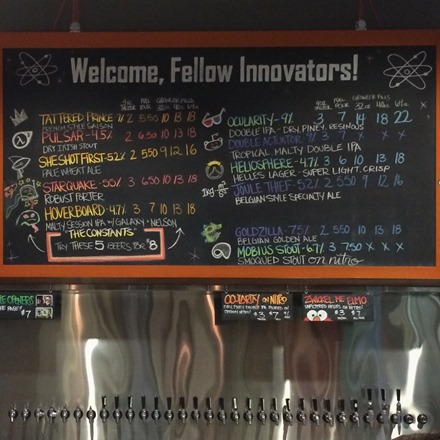 Welcome, Fellow Innovators!
4oz TASTER FULL POUR GROWLER FILLS 32oz 64oz
TATTERED PRINCE - 7% 2 5.50 10 13 18
FRENCH STYLE SAISON
PULSAR - 4.5% 2 6.50 10 13 18
DRY IRISH STOUT
SHE SHOT FIRST - 5.2% 2 5.50 9 12 16
PALE WHEAT ALE
STARQUAKE - 5.5% 3 6.50 10 13 18
ROBUST PORTER
HOVERBOARD - 4.7% 3 7 10 13 18
MALTY SESSION IPA - w/GALAXY + NELSON
"THE CONSTANTS"
TRY THESE 5 BEERS FOR $8
4oz TASTER FULL POUR GROWLER FILLS 32oz 64oz
OCULARITY - 9% 3 7 14 18 22
DOUBLE IPA - DRY, PINEY, RESINOUS
DOUBLE ACTUATOR X
TROPICAL MALTY DOUBLE IPA
HELIOSPHERE - 4.7% 3 6 10 13 18
HELLES LAGER - SUPER LIGHT, CRISP
1kg JOULE THIEF - 5.2% 2 5.50 9 12 16
BELGIAN STYLE SPECIALTY ALE
GOLDZILLA - 7.5% 2 5.50 X X X
BELGIAN GOLDEN ALE
MOBIUS STOUT - 6% 3 7.50 X X X
SMOQUED STOUT on nitro
OPENERS
$7
OCULARITY on NITRO
$3 $7
ZWICKEL ME ELMO
$3 $7